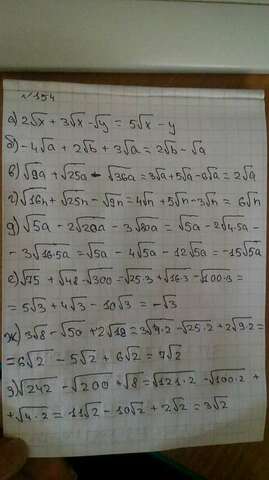 №154
а) 2√x + 3√x - √y = 5√x - y
б) -4√a + 2√b + 3√a = 2√b - √a
в) √9a + √25a - √36a = 3√a + 5√a - 6√a = 2√a
г) √16n + √25n - √9n = 4√n + 5√n - 3√n = 6√n
д) √5a - 2√20a - 3√80a = √5a - 2√4·5a -
- 3√16·5a = √5a - 4√5a - 12√5a = -15√5a
е) √75 + √48 - √300 = √25·3 + √16·3 - √100·3 =
= 5√3 + 4√3 - 10√3 = -√3
ж) 3√8 - √50 + 2√18 = 3√4·2 - √25·2 + 2√9·2 =
= 6√2 - 5√2 + 6√2 = 7√2
з) √242 - √200 + √8 = √121·2 - √100·2 +
+ √4·2 = 11√2 - 10√2 + 2√2 = 3√2